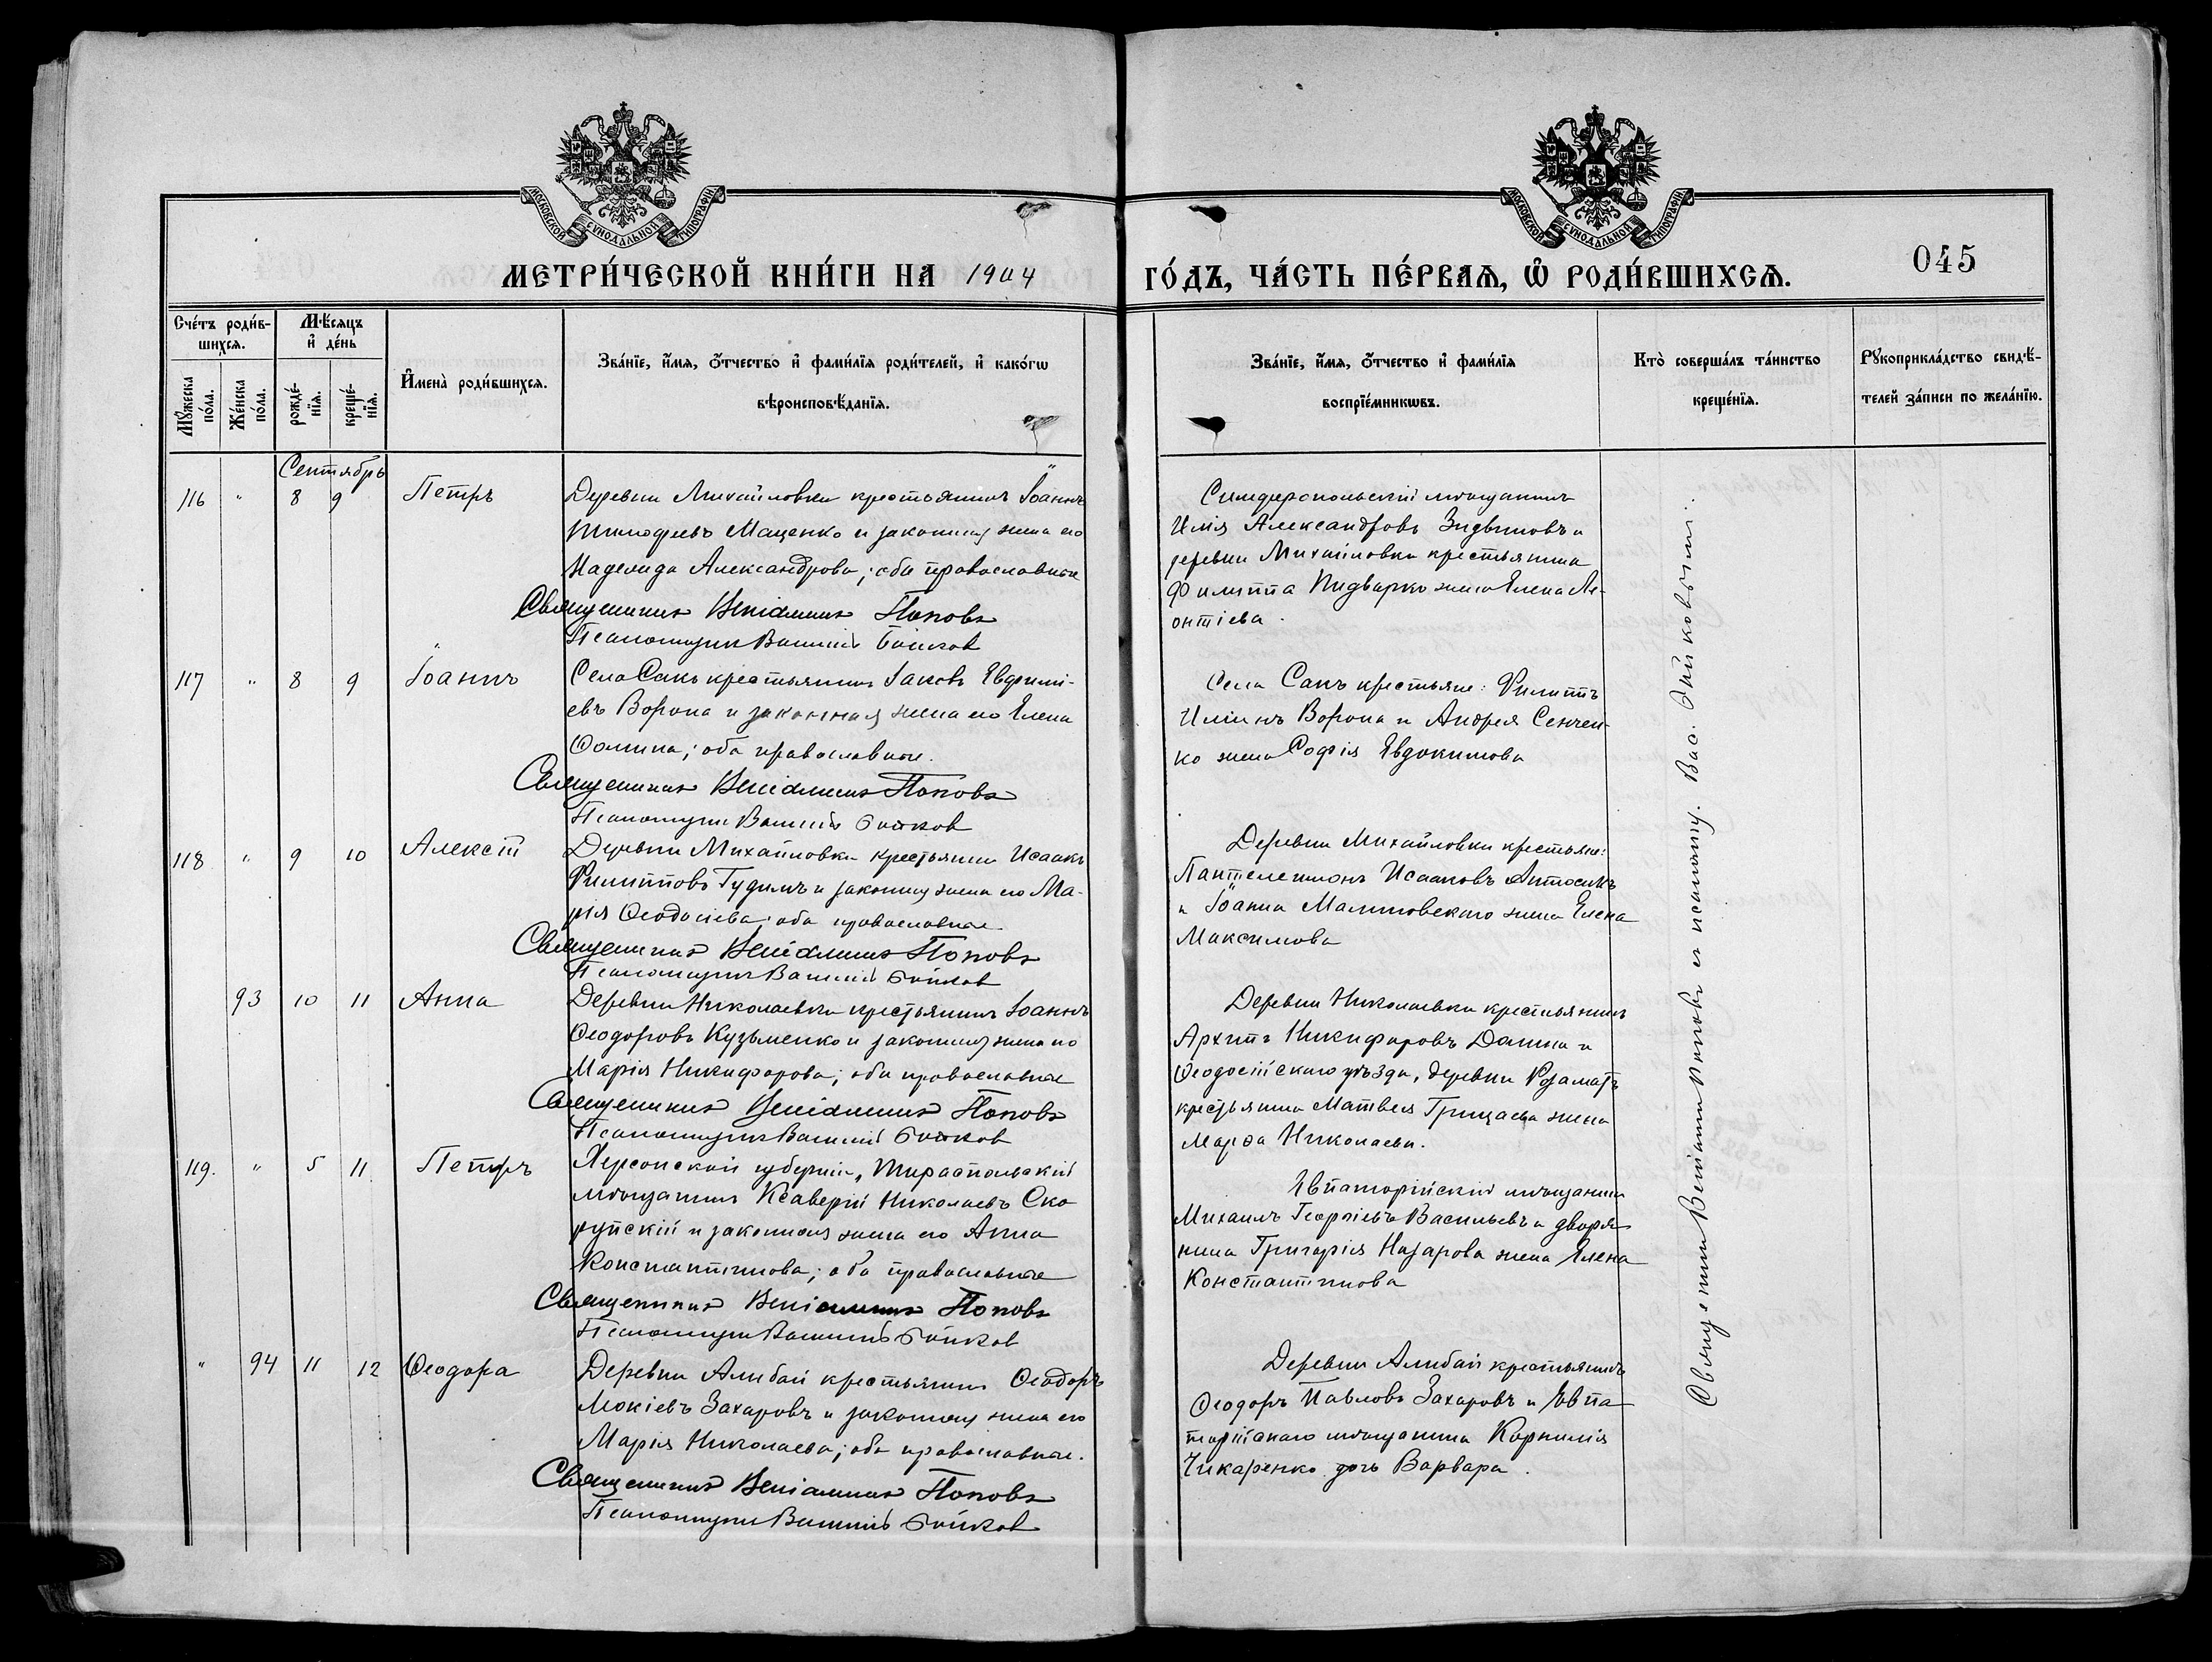 МОСКОВСКОЙ СѴНОДАЛЬНОЙ ТИПОГРАФІИ
МОСКОВСКОЙ СѴНОДАЛЬНОЙ ТИПОГРАФІИ
МЕТРИ́ЧЕСКОЙ КНИ́ГИ НА 1904 ГО́ДЪ, ЧА́СТЬ ПЕ́РВАЯ, Ѡ РОДИ́ВШИХСЯ.
045
Сче́тъ роди́в-
шихся.
Мꙋжеска по́ла.
Же́нска по́ла.
Мѣ́сяцъ
и҆ де́нь
рожде́-
нїя.
креще́-
нїя.
И҆мена̀ роди́вшихся.
Зва́нїе, и҆́мя, ѻ҆́тчество и҆ фами́лїя роди́телей, и҆ како́гѡ
вѣроисповѣ́данїя.
Зва́нїе, и҆́мя, ѻ҆́тчество и҆ фами́лїя
воспрїе́мникѡвъ.
Кто̀ соверша́лъ та́инство
креще́нїя.
Рꙋкоприкла́дство свидѣ́-
телей за́писи по жела́нїю.
Сентябрь
116 " 8 9 Петръ
Деревни Михайловки крестьянинъ Іоаннъ
Тимофеевъ Маценко и законная жена его
Надежда Александрова; оба православные
Священникъ Веніаминъ Поповъ
Псаломщик Василий Бойков
Симферопольскій мѣщанинъ
Илія Александровъ и
деревни Михайловки крестьянина
Филиппа Пидварко жена Елена Ле-
онтіева.
117 " 8 9 Іоаннъ
Села Сакъ крестьянинъ Іаковъ Евѳимі-
евъ Ворона и законная жена его Елена
Ѳомина; оба православные.
Священникъ Веніаминъ Поповъ
Псаломщик Василий Бойков
Села Сакъ крестьяне: Филиппъ
Иліинъ Ворона и Андрея Сенчен-
ко жена Софія Евдокимова
118 " 9 10 Алексій
Деревни Михайловки крестьянинъ Исаакъ
Филипповъ Гудимъ и законная жена его Ма-
рія Ѳеодосіева; оба православные
Священникъ Веніаминъ Поповъ
Псаломщик Василий Бойков
Деревни Михайловки крестьяне:
Пантелеимонъ Исааковъ
и Іоанна Малиновскаго жена Елена
Максимова
93 10 11 Анна
Деревни Николаевки крестьянинъ Іоаннъ
Ѳеодоровъ Кузьменко и законная жена его
Марія Никифорова; оба православные
Священникъ Веніаминъ Поповъ
Псаломщик Василий Бойков
Деревни Николаевки крестьянинъ
Архипъ Никифоровъ и
Ѳеодосійскаго уѣзда, деревни
крестьянина Матвея Грицаева жена
Марѳа Николаева.
119. " 5 11 Петръ
Херсонской губерніи, Тираспольскій
мѣщанинъ Ксаверій Николаевъ Ско-
рупскій и законная жена его Анна
Константинова; оба православные
Священникъ Веніаминъ Поповъ
Псаломщик Василий Бойков
Евпаторійскій мѣщанинъ
Михаилъ Георгіевъ Васильевъ и дворя-
нина Григорія Назарова жена Елена
Константинова
" 94 11 12 Ѳеодора
Деревни Алибай крестьянинъ Ѳеодоръ
Мокіевъ Захаровъ и законная жена его
Марія Николаева; оба православные.
Священникъ Веніаминъ Поповъ
Псаломщик Василий Бойков
Деревни Алибай крестьянинъ
Ѳеодоръ Павловъ Захаровъ и Евпа-
торійскаго мѣщанина Корнилія
Чикаренко дочь Варвара.
Священникъ Веніаминъ Поповъ и псаломщ. Вас. Бойковымъ.